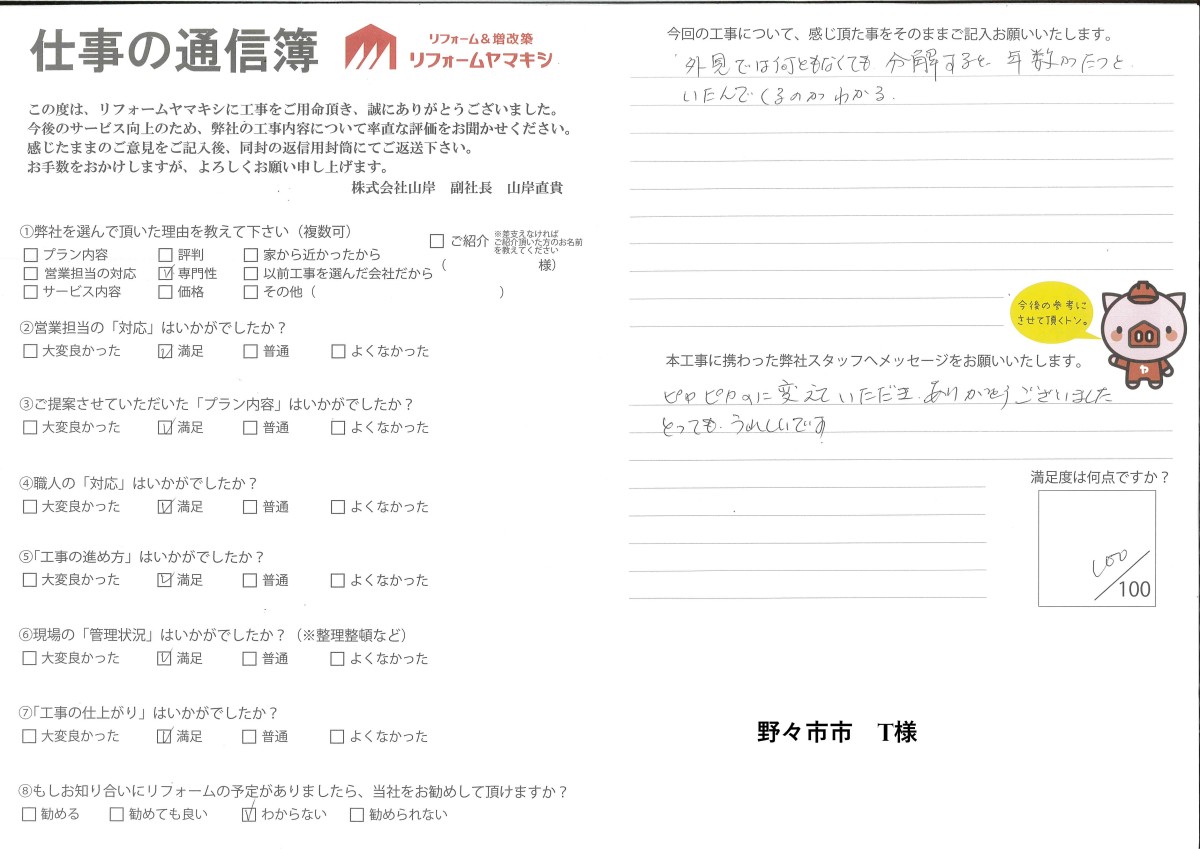 仕事の通信簿
リフォーム＆増改築
リフォームヤマキシ
この度は、リフォームヤマキシに工事をご用命頂き、誠にありがとうございました。
今後のサービス向上のため、弊社の工事内容について率直な評価をお聞かせください。
感じたままのご意見をご記入後、同封の返信用封筒にてご返送下さい。
お手数をおかけしますが、よろしくお願い申し上げます。
株式会社山岸　副社長　山岸直貴
①弊社を選んで頂いた理由を教えて下さい（複数可）
□ プラン内容　□ 評判　□ 家から近かったから
□ 営業担当の対応　☑ 専門性　□ 以前工事を選んだ会社だから
□ サービス内容　□ 価格　□ その他（　　　）
□ ご紹介
※差支えなければ
ご紹介頂いた方のお名前
を教えてください
（　　　様）
②営業担当の「対応」はいかがでしたか？
□ 大変良かった　☑ 満足　□ 普通　□ よくなかった
③ご提案させていただいた「プラン内容」はいかがでしたか？
□ 大変良かった　☑ 満足　□ 普通　□ よくなかった
④職人の「対応」はいかがでしたか？
□ 大変良かった　☑ 満足　□ 普通　□ よくなかった
⑤「工事の進め方」はいかがでしたか？
□ 大変良かった　☑ 満足　□ 普通　□ よくなかった
⑥現場の「管理状況」はいかがでしたか？（※整理整頓など）
□ 大変良かった　☑ 満足　□ 普通　□ よくなかった
⑦「工事の仕上がり」はいかがでしたか？
□ 大変良かった　☑ 満足　□ 普通　□ よくなかった
⑧もしお知り合いにリフォームの予定がありましたら、当社をお勧めして頂けますか？
□ 勧める　□ 勧めても良い　☑ わからない　□ 勧められない
今回の工事について、感じ頂た事をそのままご記入お願いいたします。
外見では何ともなくても 分解すると 年数がたつと、
いたんでくるのがわかる.
今後の参考に
させて頂くトン。
ヤ
本工事に携わった弊社スタッフへメッセージをお願いいたします。
ピカピカのに変えていただき、ありがとうございました
とっても、うれしいです
満足度は何点ですか？
100/100
野々市市　T様